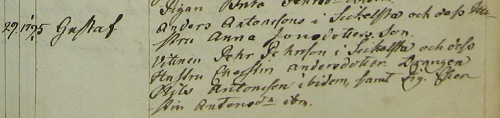 Pigan
29. 17/. 95 Gustaf Anders Antonssons i Sickelsta och dess
stru Anna Jonsdotters Son.
Vitnen Pehr Pehrson i Sickelsta och dess
Hustru Cherstin Andersdotter Drängen
Nils Antonsson ibidem, samt Pig. Cher
stin Antonsdr ibm.